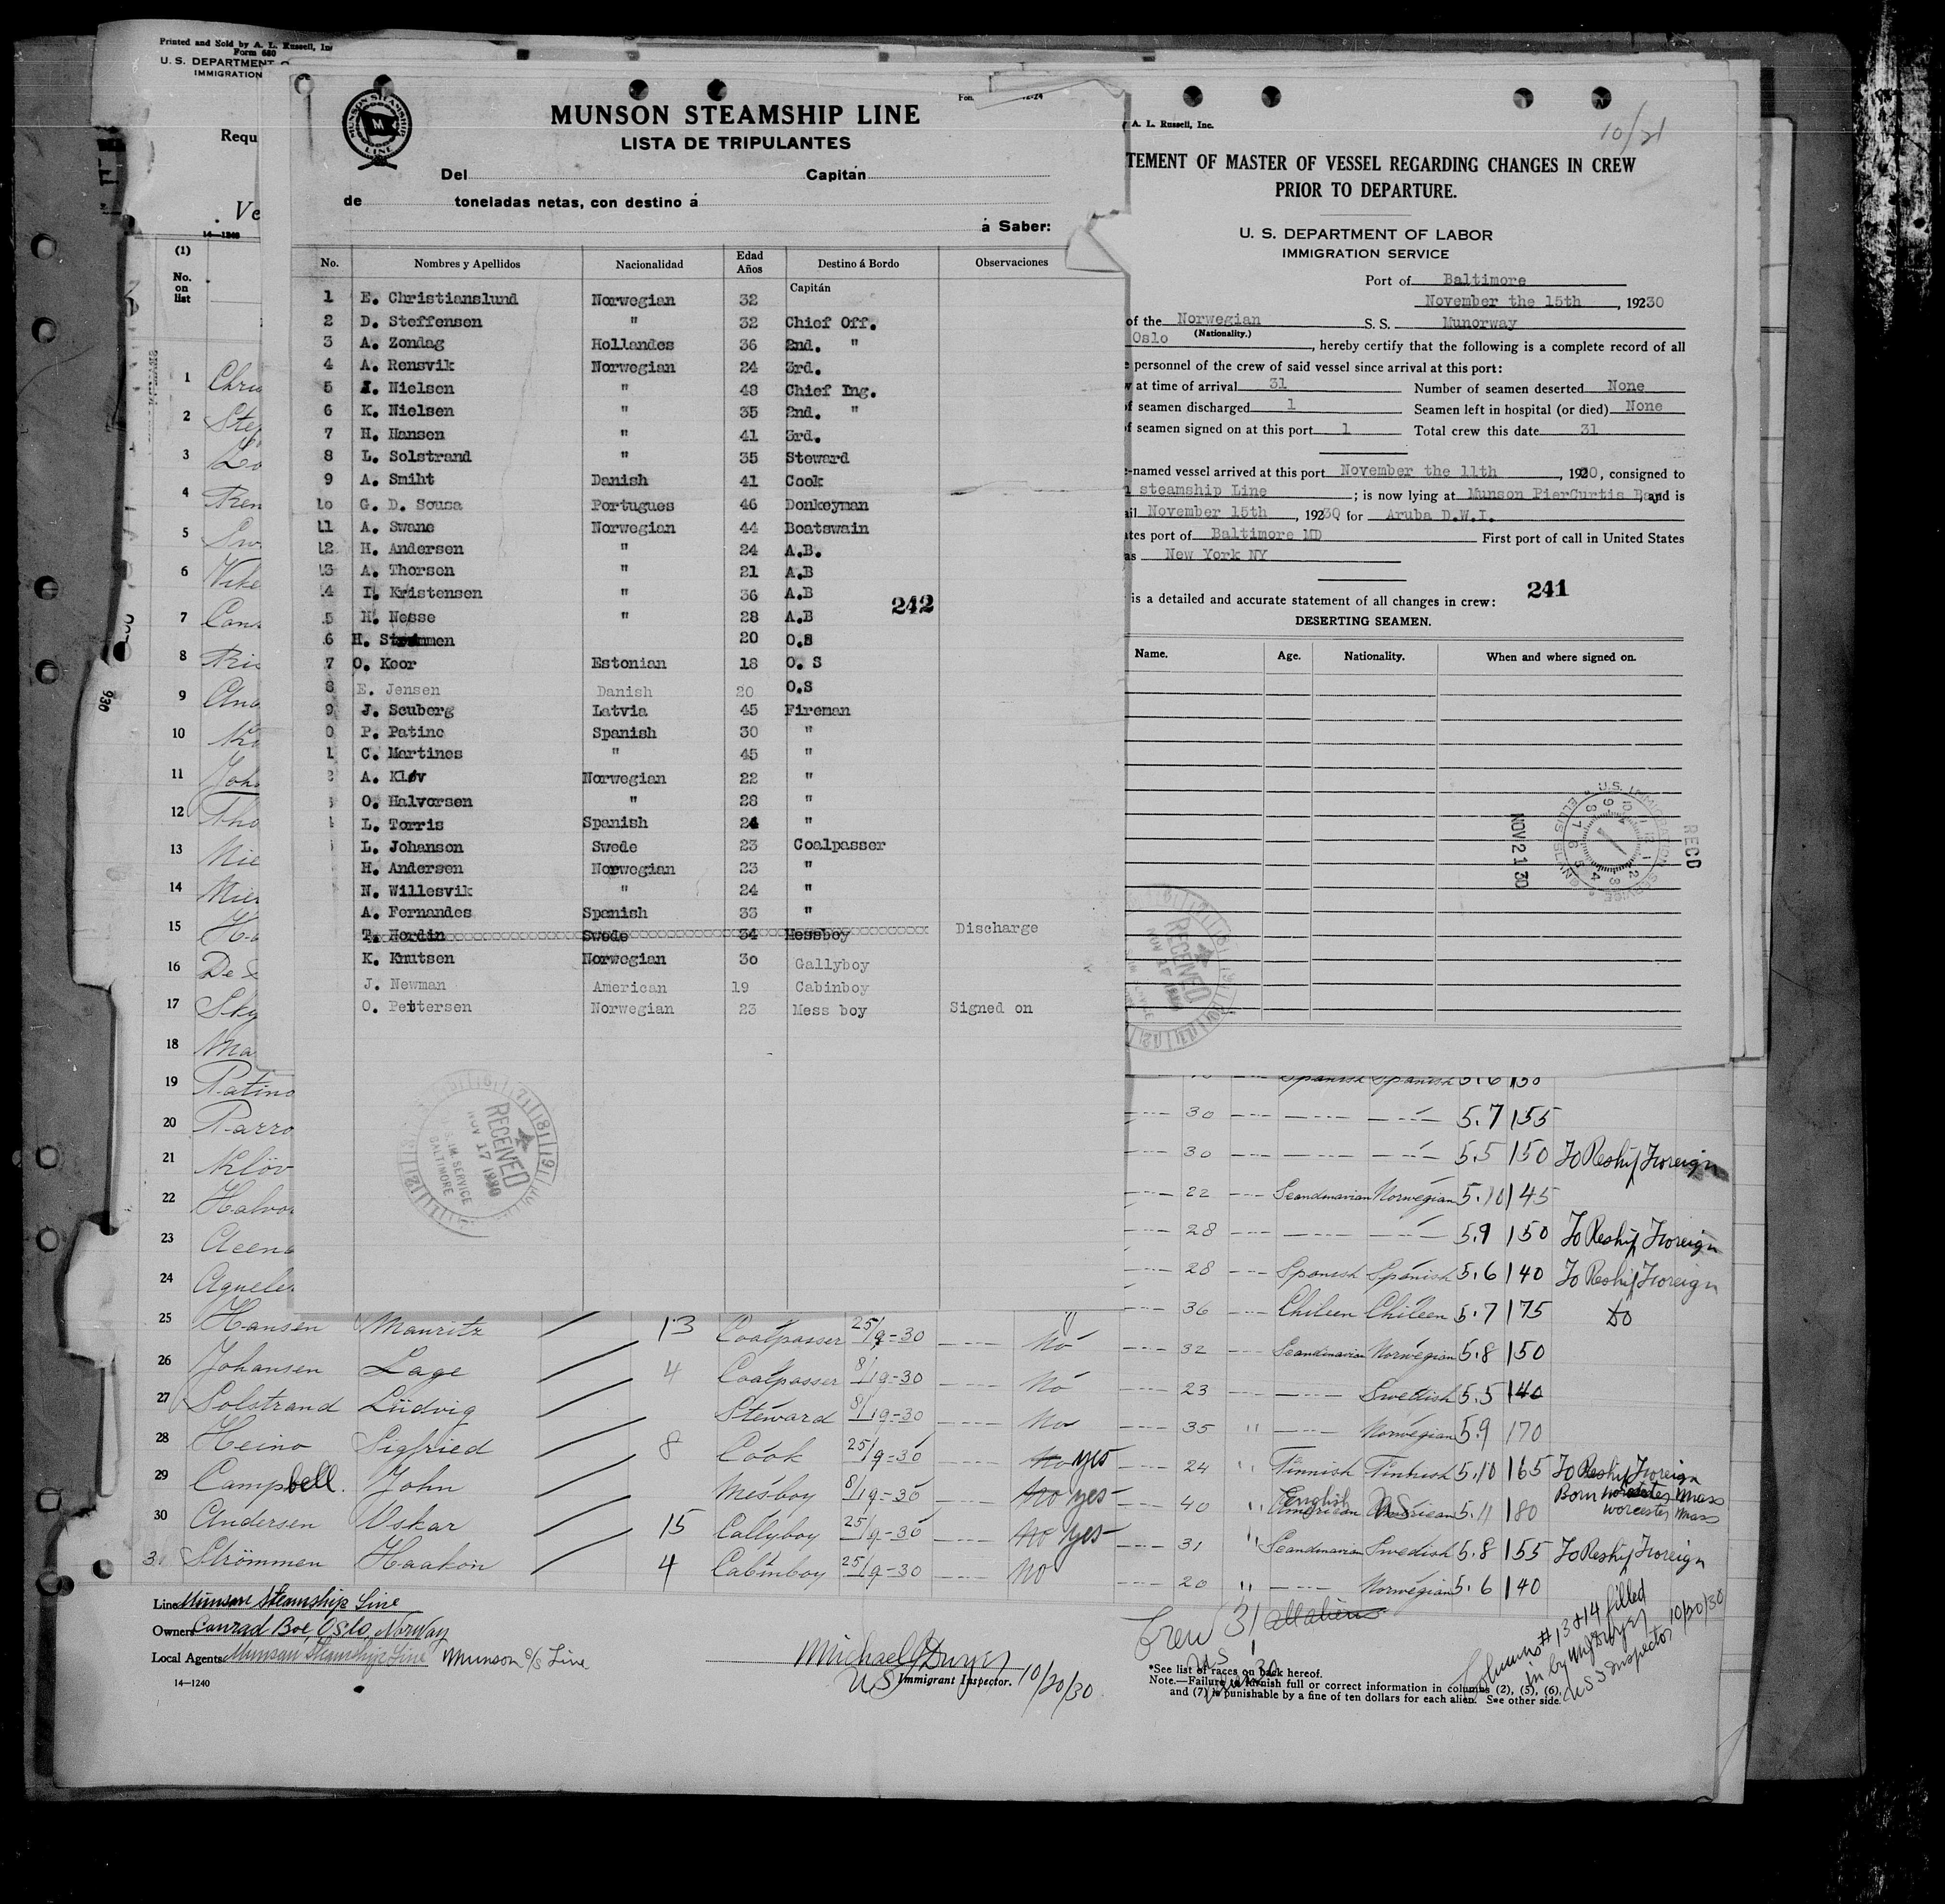 Printed and Sold by A. L. Russell, Inc
Form 680
U. S. DEPARTMENT
IMMIGRATION
Requ
Ve
14—1240
(1)
No.
on
list
1 Chris
2 Ste
3 Zo
4 Ren
5 Sw
6 Vike
7 Cans
8
9 And
10
11 Joha
12 Tho
13 Nie
14
15 Ha
16 De S
17 Sky
18 Ma
19 Patino
20 Parro
21 Klöv
22 Halvor
23
24
MUNSON STEAMSHIP LINE
MUNSON STEAMSHIP LINE
LISTA DE TRIPULANTES
Del Capitán
de toneladas netas, con destino á
á Saber:
No. Nombres y Apellidos Nacionalidad Edad Años Destino á Bordo Observaciones
1 E. Christianslund Norwegian 32 Capitán
2 D. Steffensen " 32 Chief Off.
3 A. Zondag Hollandes 36 2nd. "
4 A. Rensvik Norwegian 24 3rd.
5 I. Nielsen " 48 Chief Ing.
6 K. Nielsen " 35 2nd. "
7 H. Hansen " 41 3rd.
8 L. Solstrand " 35 Steward
9 A. Smiht Danish 41 Cook
10 G. D. Sousa Portugues 46 Donkeyman
11 A. Swane Norwegian 44 Boatswain
12 H. Andersen " 24 A.B.
13 A. Thorsen " 21 A.B
14 I. Kristensen " 36 A.B
242
5 H. Nesse " 28 A.B
6 H. Strømmen 20 O.S
7 O. Koor Estonian 18 O. S
8 E. Jensen Danish 20 O.S
9 J. Seuberg Latvia 45 Fireman
0 P. Patino Spanish 30 "
1 C. Martines " 45 "
2 A. Kløv Norwegian 22 "
O. Halvorsen " 28 "
L. Torris Spanish 24 "
L. Johanson Swede 23 Coalpasser
H. Andersen Norwegian 23 "
N. Willesvik " 24 "
A. Fernandes Spanish 33 "
T. Hordin Swede 34 Messboy Discharge
K. Knutsen Norwegian 30 Gallyboy
J. Newman American 19 Cabinboy
O. Pettersen Norwegian 23 Mess boy Signed on
RECEIVED
NOV 17 1930
IM. SERVICE
BALTIMORE
A. L. Russell, Inc.
10/21
TEMENT OF MASTER OF VESSEL REGARDING CHANGES IN CREW
PRIOR TO DEPARTURE.
U. S. DEPARTMENT OF LABOR
IMMIGRATION SERVICE
Port of Baltimore
November the 15th, 19230
of the Norwegian S. S. Munorway
(Nationality.)
Oslo, hereby certify that the following is a complete record of all
personnel of the crew of said vessel since arrival at this port:
at time of arrival 31 Number of seamen deserted None
f seamen discharged 1 Seamen left in hospital (or died) None
f seamen signed on at this port 1 Total crew this date 31
-named vessel arrived at this port November the 11th, 1930, consigned to
steamship Line ; is now lying at Munson PierCurtis Bay and is
ail November 15th, 19230 for Aruba D.W.I.
tes port of Baltimore MD First port of call in United States
as New York NY
is a detailed and accurate statement of all changes in crew: 241
DESERTING SEAMEN.
Name. Age. Nationality. When and where signed on.
U.S. IMMIGRATION SERVICE ELLIS ISLAND
REC'D
NOV 21 30
RECEIVED
NOV 17 1930
Spanish Spanish 5.6 150
30 5.7 155
30 5.5 150 To Reship Foreign
22 Scandinavian Norwegian 5.10 145
28 5.9 150 To Reship Foreign
28 Spanish Spanish 5.6 140 To Reship Foreign
36 Chileen Chileen 5.7 175 Do
25 Hansen Mauritz 13 Coalpasser 25/9-30 No 32 Scandinavian Norwegian 5.8 150
26 Johansen Lage 4 Coalpasser 8/19-30 No 23 Swedish 5.5 140
27 Solstrand Lüdvig Steward 8/19-30 No 35 " Norwegian 5.9 170
28 Heino Sigfried 8 Cook 25/9-30 No yes 24 " Finnish Finnish 5.10 165 To Reship Foreign
29 Campbell. John Mesboy 8/19-30 No yes 40 " English American US American 5.11 180 Born Worcester Mass
Worcester Mass
30 Andersen Oskar 15 Gallyboy 25/9-30 No yes 31 " Scandinavian Swedish 5.8 155 To Reship Foreign
3 Strömmen Haakon 4 Cabinboy 25/9-30 No 20 " Norwegian 5.6 140
Line Munson Steamship Line
Owners Conrad Boe, Oslo, Norway
Local Agents Munson Steamship Line Munson S/S Line
14—1240
Michael J Dwyer
US Immigrant Inspector. 10/20/30
Crew 31 all aliens
1 US
30
*See list of races on back hereof.
Note.—Failure to furnish full or correct information in columns (2), (5), (6),
and (7) is punishable by a fine of ten dollars for each alien. See other side.
Columns #13 & 14 filled
in by MJ Dwyer
US Inspector 10/20/30